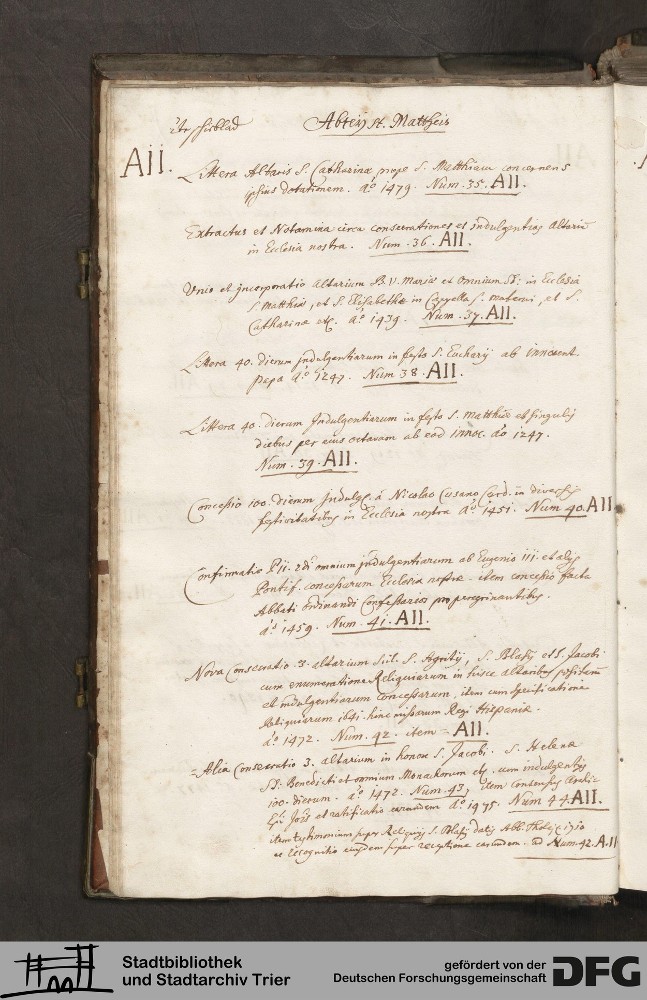 Abteij st. Mattheis
AII. Littera Altaris S. Catharinæ prope S. Matthiam concernens
ipsius dotationem. aō 1479. Num. 35. AII.
Extractus et Notamina circa consecrationes et indulgentias altariū
in Eclesia nostra. Num. 36. AII.
Unio et incorporatio altarium B. V. Mariæ et omnium SS. in Eclesia
S. Matthiæ, et S. Elisabethæ in Cappella S. Materni, et S.
Catharinæ etc. aō 1439. Num. 37. AII.
Littera 40. dierum indulgentiarum in festo S. Eucharij ab innocent.
papa aō 1247. Num 38. AII.
Littera 40. dierum Indulgentiarum in festo S. Matthiæ et singulis
diebus per eius octavam ab eod innoc. aō 1247.
Num. 39. AII.
Concessio 100. dierum Indulg. á Nicolao Cusano Card. in diversis
festivitatibus in Ecclesia nostra aō 1451. Num 40. AII
Confirmatio PII. 2di omnium indulgentiarum ab Eugenio III et alijs
Pontif. concessarum Ecclesiæ nostræ. item concessio facta
Abbati ordinandi Confessarios pro peregrinantibus.
aō 1459. Num. 41. AII.
Nova Consecratio 3. altarium scil. S. Agritij, S. Blasij et S. Jacobi
cum enumeratione Reliquiarum in hisce altaribus positarum
et indulgentiarum concessarum, item cum specificatione
Reliquiarum 1641. hinc missarum Regi Hispaniæ.
aō 1472. Num. 42. item = AII.
= Alia Consecratio 3. altarium in honore S. Jacobi. S. Helenæ
SS. Benedicti et omnium Monachorum etc. cum indulgentijs
100. dierum. aō 1472. Num. 43, item Consensus Archi-
Epi Jois et ratificatio earundem aō 1475. Num 44. AII.
item testimonium super Reliquijs S. Blasij datis Abb. 1710
et recognitio eiusdem super receptione earundem. ad Num. 42. A.II
Stadtbibliothek
und Stadtarchiv Trier
gefördert von der
Deutschen Forschungsgemeinschaft
DFG